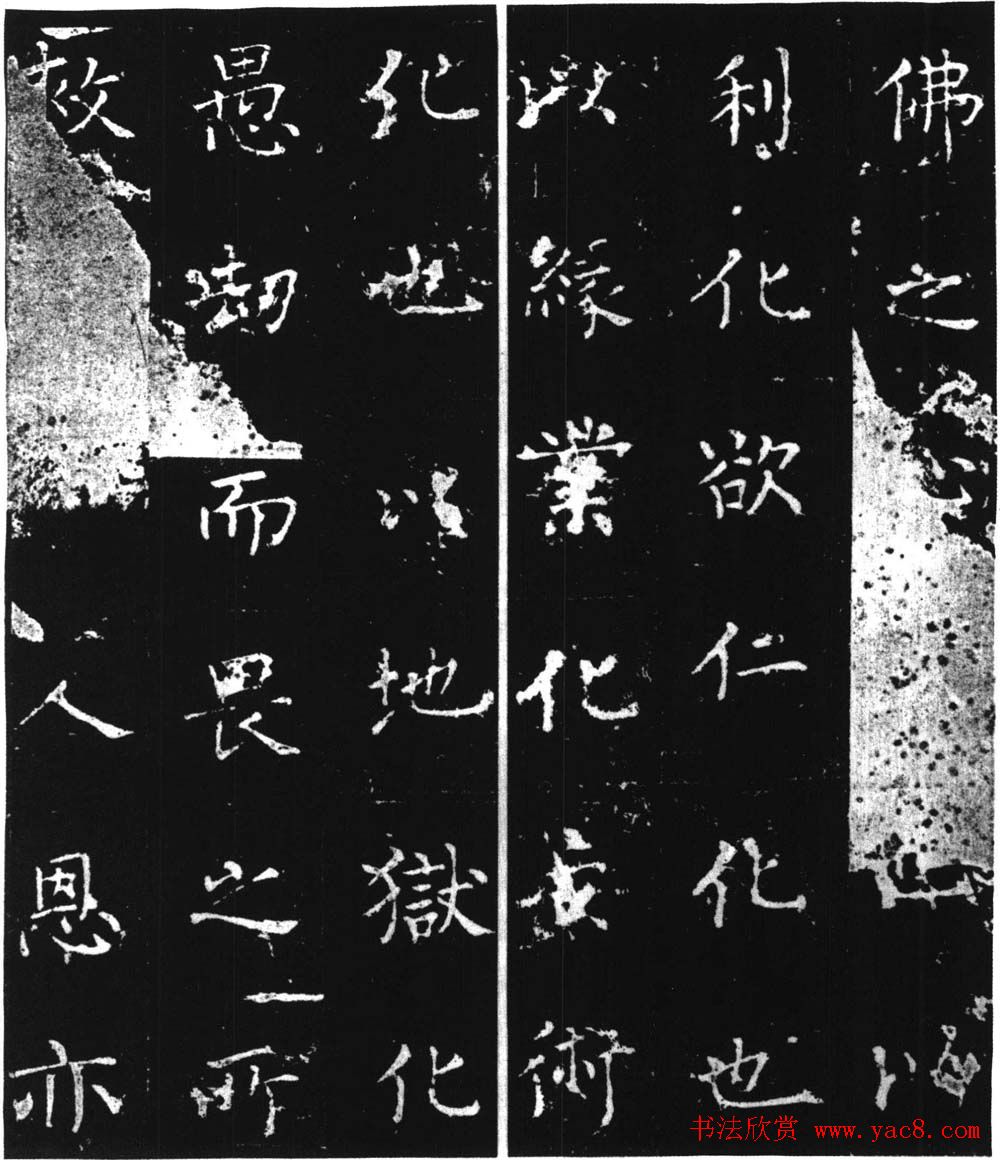 佛之也以
利化欲仁化也
以緣業化妄術
化也以地獄化
愚劫而畏之一所
故人恩亦
书法欣赏 www.yac8.com